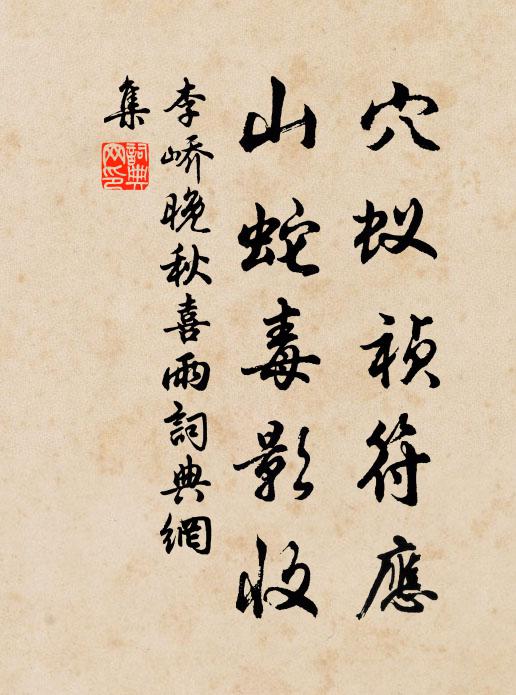 穴蚁祯符應
山蛇毒影收
李嶠晚秋喜雨詞典網
集
詞典網印